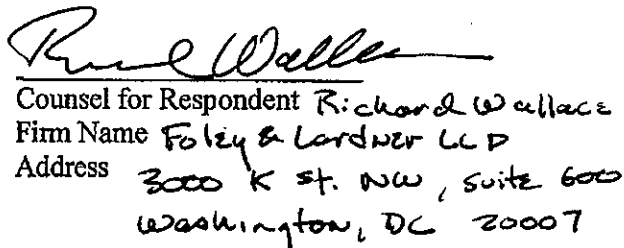 Richard Wallace
Counsel for Respondent Richard Wallace
Firm Name Foley & Lardner LLP
Address 3000 K St. NW, Suite 600
Washington, DC 20007